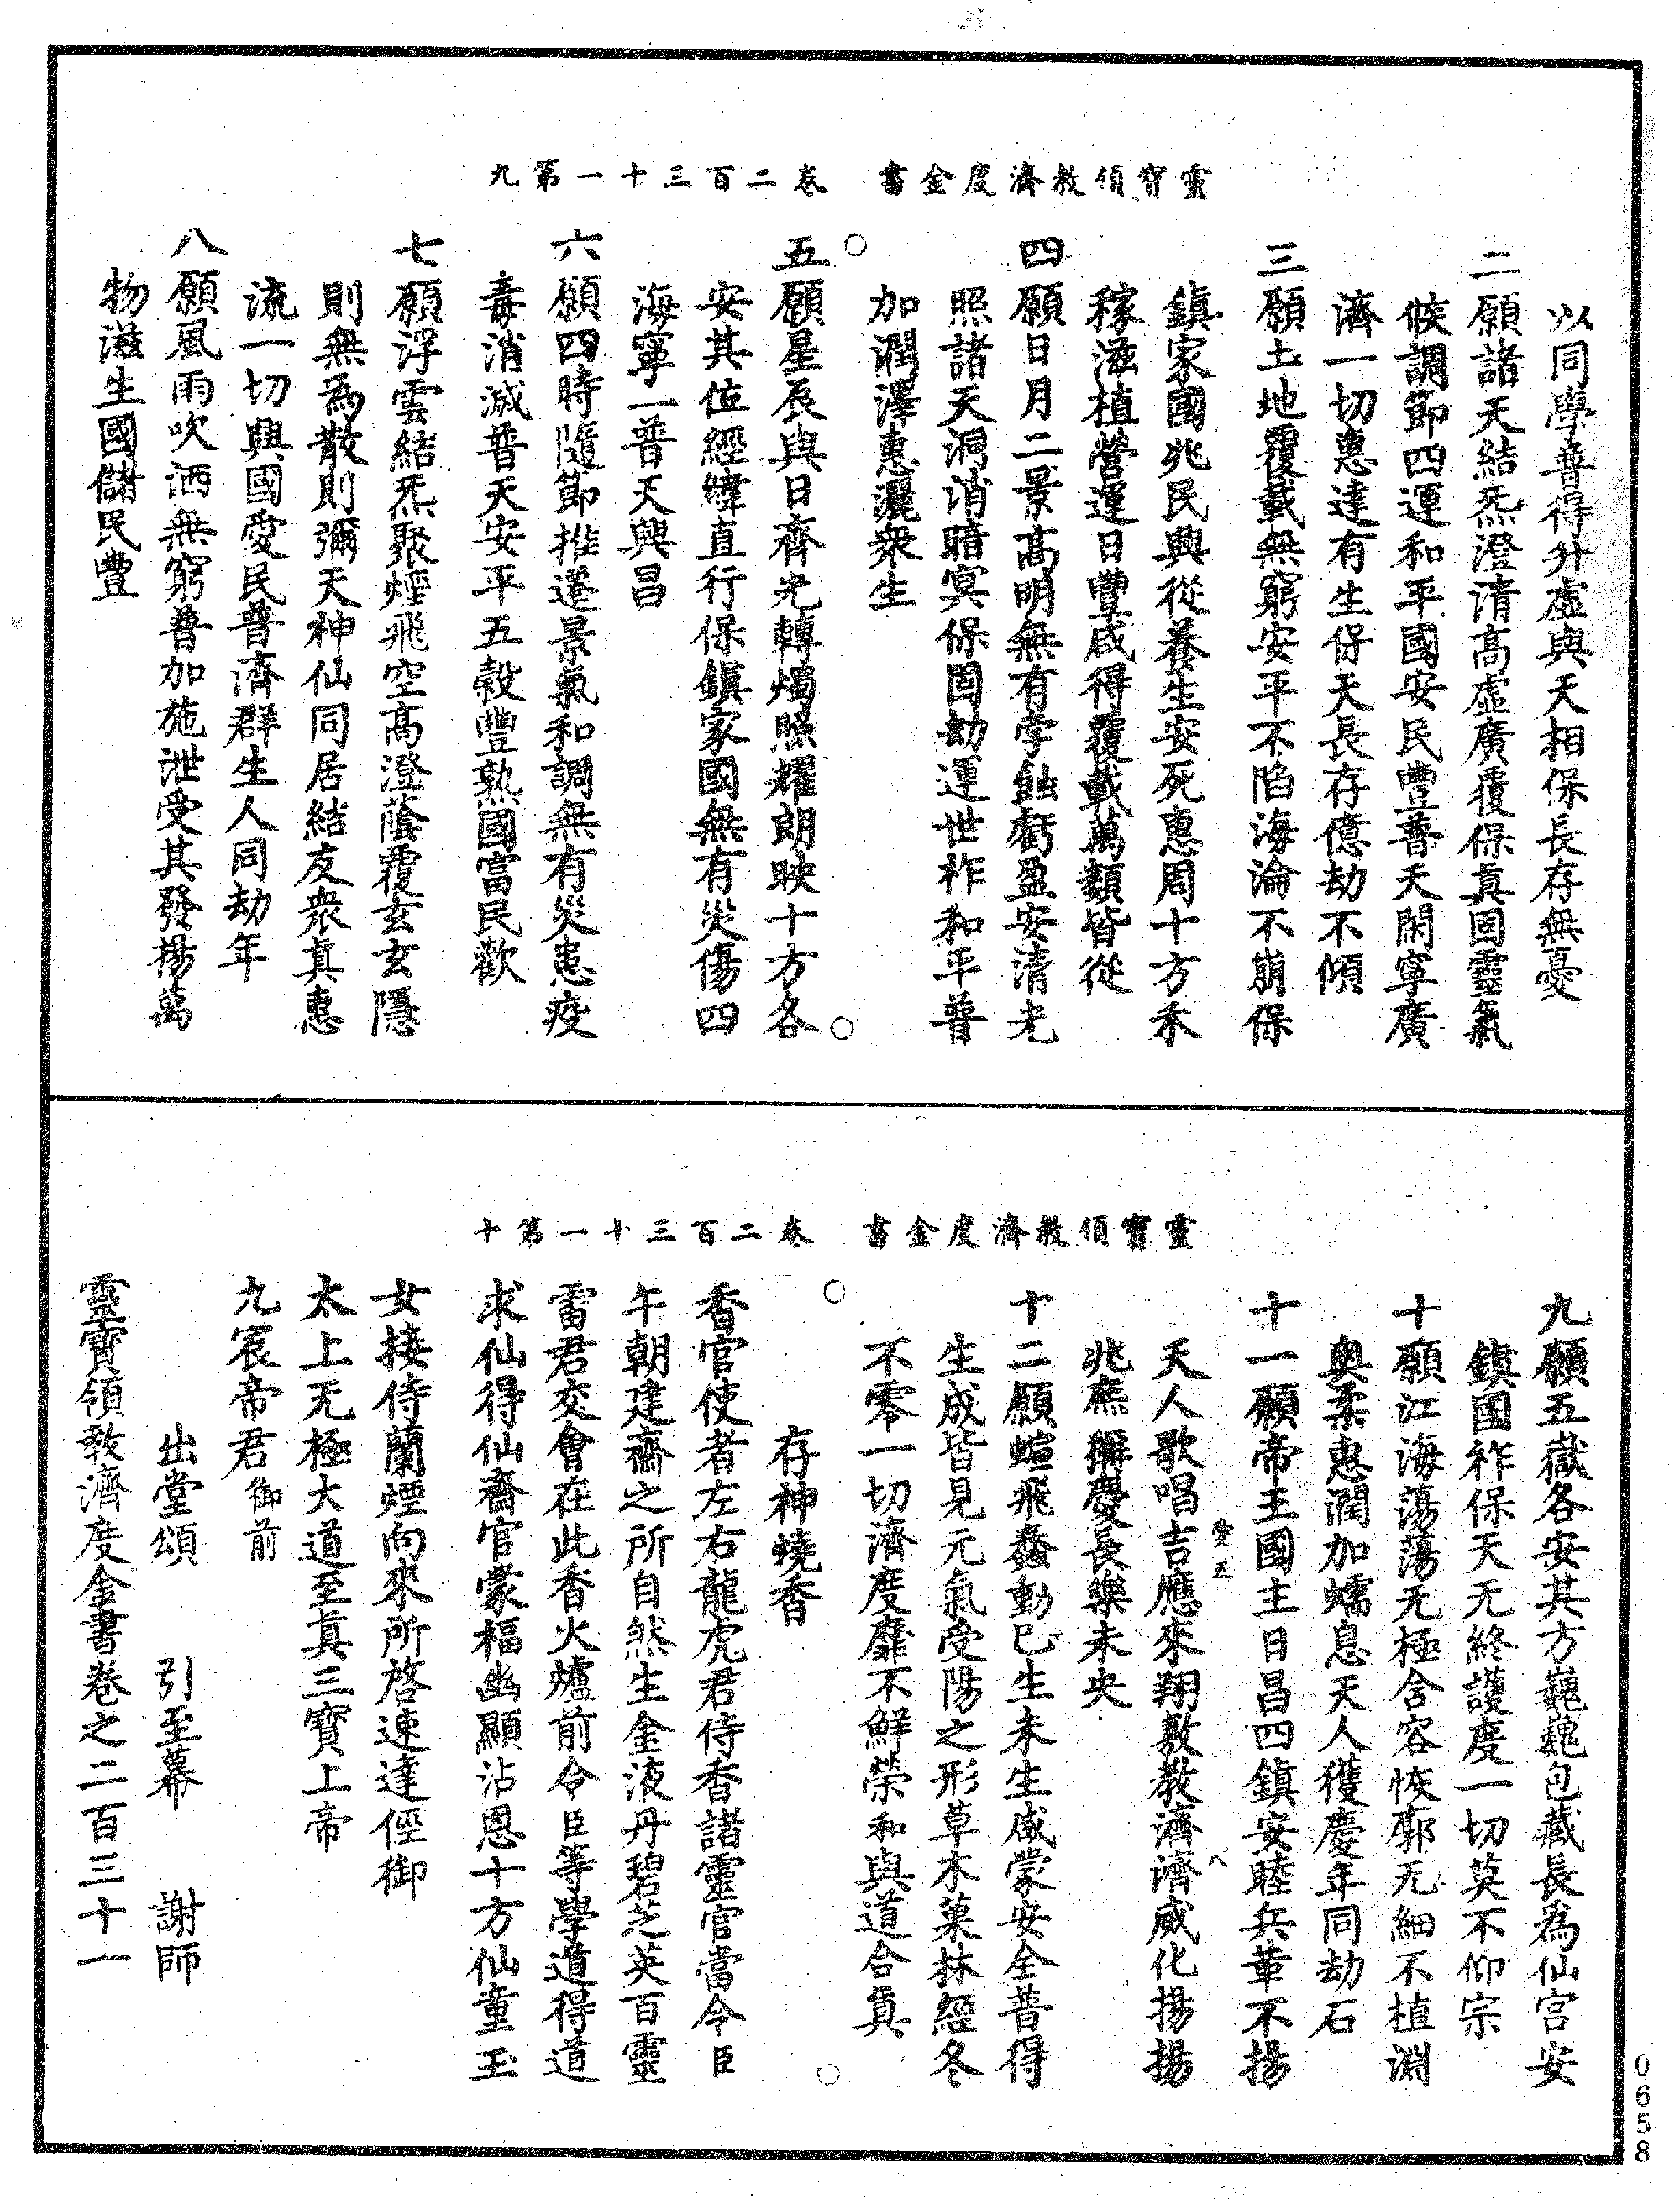 靈寶領教濟度金書　卷二百三十一第九
以同學普得升虛與天相保長存無憂
二願諸天結炁澄清高虛廣覆保真固靈氣
候調節四運和平國安民豐普天閑寧廣
濟一切惠達有生保天長存億劫不傾
三願土地覆載無窮安平不陷海淪不崩保
鎮家國兆民興從養生安死惠周十方禾
稼滋植營運日豐咸得覆載萬類皆從
四願日月二景高明無有孛蝕虧盈安清光
照諸天洞消暗冥保固劫運世祚和平普
加潤澤惠灑衆生
五願星辰與日齊光轉燭照耀朗映十方各
安其位經緯直行保鎮家國無有災傷四
海寧一普天興昌
六願四時隨節推遷景氣和調無有災恚疫
毒消滅普天安平五穀豐熟國富民歡
七願浮雲結炁聚煙飛空高澄蔭覆玄玄隱
則無為散則彌天神仙同居結友衆真惠
流一切興國愛民普濟群生人同劫年
八願風雨吹洒無窮普加施泄受其發揚萬
物滋生國儲民豐
靈寶領教濟度金書　卷二百三十一第十
九願五嶽各安其方巍巍包藏長為仙宫安
鎮國祚保天无終護度一切莫不仰宗
十願江海蕩蕩无極含容恢廓无細不植淵
輿柔惠潤加蠕息天人獲慶年同劫石
十一願帝王國主日昌四鎮安睦兵革不揚
天人歌唱吉應來翔敷教濟濟威化揚揚
兆庶稱慶長樂未央
十二願蝖飛蠢動已生未生咸蒙安全普得
生成皆見元氣受陽之形草木菓林經冬
不零一切濟度靡不鮮榮和與道合真
存神燒香
香官使者左右龍虎君侍香諸靈官當令臣
午朝建齋之所自然生金液丹碧芝英百靈
雷君交會在此香火爐前令臣等學道得道
求仙得仙齋官蒙福幽顯沾恩十方仙童玉
女接侍蘭煙向來所啓速達徑御
太上无極大道至真三寶上帝
九宸帝君御前
出堂頌　引至幕　謝師
靈寶領教濟度金書卷之二百三十一
0658